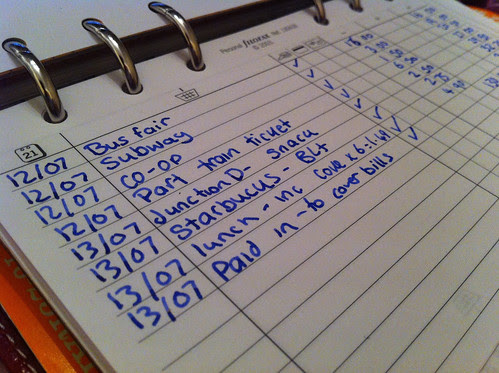 Personal filofax
21
12/07 Bus fair
12/07 Subway
12/07 CO-OP
12/07 Part train ticket
13/07 Junction D- snack
13/07 Starbucus - BLT
13/07 lunch - inc
13/07 Paid in - to cover bills